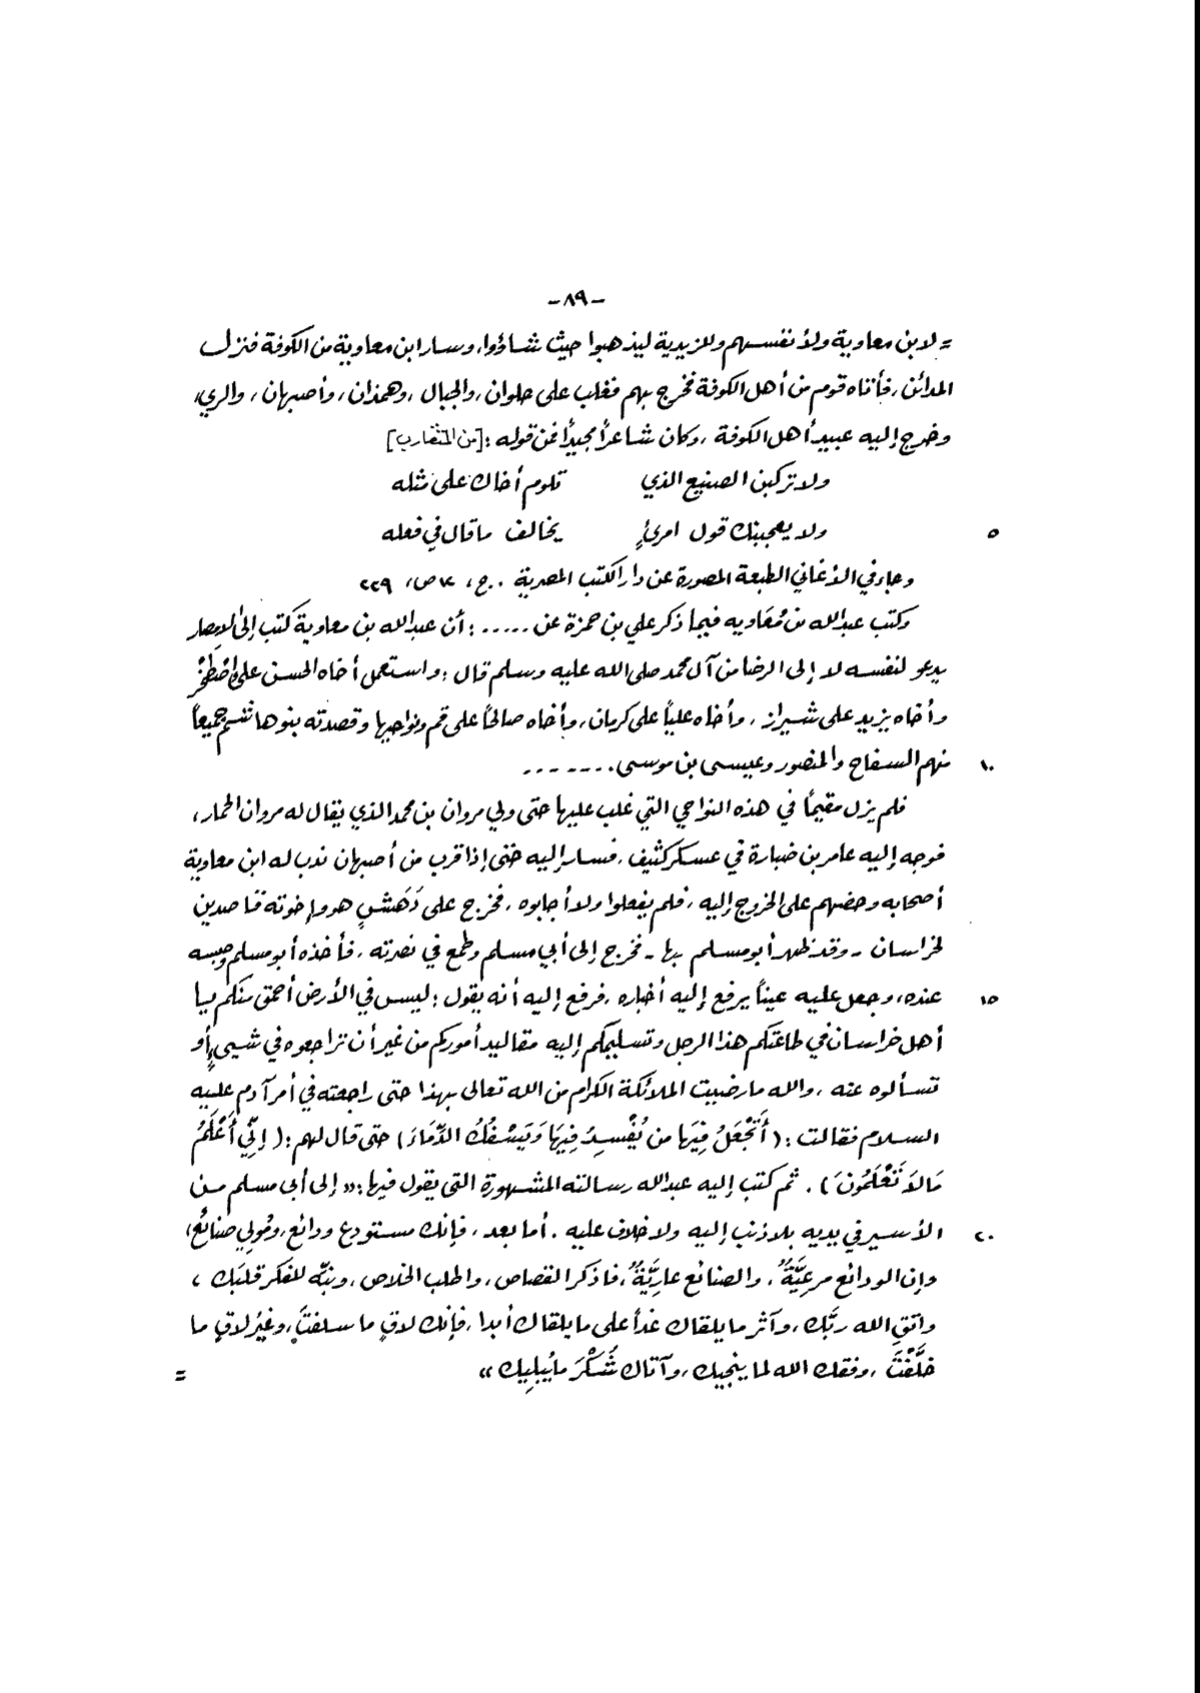 -٨٩-
= لابن معاوية ولأنفسهم وللزيدية ليذهبوا حيث شاؤوا، وسار ابن معاوية من الكوفة فنزل
المدائن، فأتاه قوم من أهل الكوفة فخرج بهم فغلب على حلوان، والجبال، وهمذان، وأصبهان، والري،
وخرج إليه عبيد أهل الكوفة، وكان شاعراً مجيداً فمن قوله: [من المتقارب]
ولا تركبن الصنيع الذي تلوم أخاك على مثله
٥ ولا يعجبنك قول امرئٍ يخالف ما قال في فعله
وجاء في الأغاني الطبعة المصورة عن دار الكتب المصرية .. ج، ١٢ ص، ٢٢٩
وكتب عبدالله بن مُعَاويه فيما ذكر علي بن حمزة عن .....: أن عبدالله بن معاوية كتب إلى الأمصار
يدعو لنفسه لا إلى الرضا من آل محمد صلى الله عليه وسلم قال: واستعمل أخاه الحسن على إصْطَخْر
وأخاه يزيد على شيراز، وأخاه علياً على كرمان، وأخاه صالحاً على قم ونواحيها وقصدته بنو هاشم جميعاً
١٠ منهم السفاح والمنصور وعيسى بن موسى.......
فلم يزل مقيماً في هذه النواحي التي غلب عليها حتى ولي مروان بن محمد الذي يقال له مروان الحمار،
فوجه إليه عامر بن ضبارة في عسكر كثيف، فسار إليه حتى إذا قرب من أصبهان ندب له ابن معاوية
أصحابه وحضهم على الخروج إليه، فلم يفعلوا ولا أجابوه، فخرج على دَهَشٍ هو وإخوته قاصدين
لخراسان - وقد ظهر أبو مسلم بها - فخرج إلى أبي مسلم وطمع في نصرته، فأخذه أبو مسلم وحبسه
١٥ عنده، وجعل عليه عيناً يرفع إليه أخباره، فرفع إليه أنه يقول: ليس في الأرض أحمق منكم يا
أهل خراسان في طاعتكم هذا الرجل وتسليمكم إليه مقاليد أموركم من غير أن تراجعوه في شيىءٍ أو
تسألوه عنه، والله ما رضيت الملائكة الكرام من الله تعالى بهذا حتى راجعته في أمر آدم عليه
السلام فقالت: (أَتَجْعَلُ فِيَها من يُفْسِدُ فِيَها وَيَسْفِكُ الدِّمَاءَ) حتى قال لهم: (إنِّي أَعْلَمُ
مَالاَ تَعْلَمُونَ). ثم كتب إليه عبدالله رسالته المشهورة التي يقول فيها: « إلى أبي مسلم من
٢٠ الأسير في يديه بلا ذنب إليه ولا خلاف عليه. أما بعد، فإنك مستودع ودائع، ومُولي صنائع،
وإن الودائع مرعِيَّةٌ، والصنائع عارِيَّةٌ، فاذكر القصاص، واطلب الخلاص، ونبِّه للفكر قلبَك،
واتقِ الله ربَّك، وآثر ما يلقاك غداً على ما يلقاك أبدا، فإنك لاقٍ ما سلفتَ، وغيُر لاقٍ ما
خلَّفْتَ، وفقك الله لما ينجيك، وآتاك شُكْرَ ما يُبلِيك » =